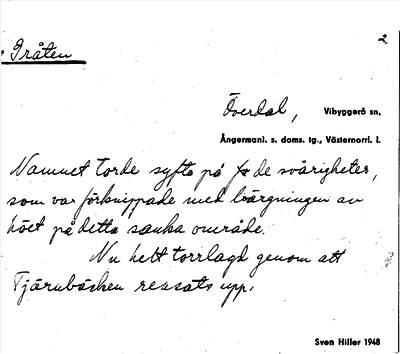 Gråten
2
Överdal, Vibyggerå sn,
Ångermanl. s. doms. tg., Västernorrl. l.
Namnet torde syfta på de svårigheter,
som var förknippade med bärgningen av
höet på detta sanka område.
Nu helt torrlagd genom att
Tjärnbäcken rensats upp.
Sven Hiller 1948